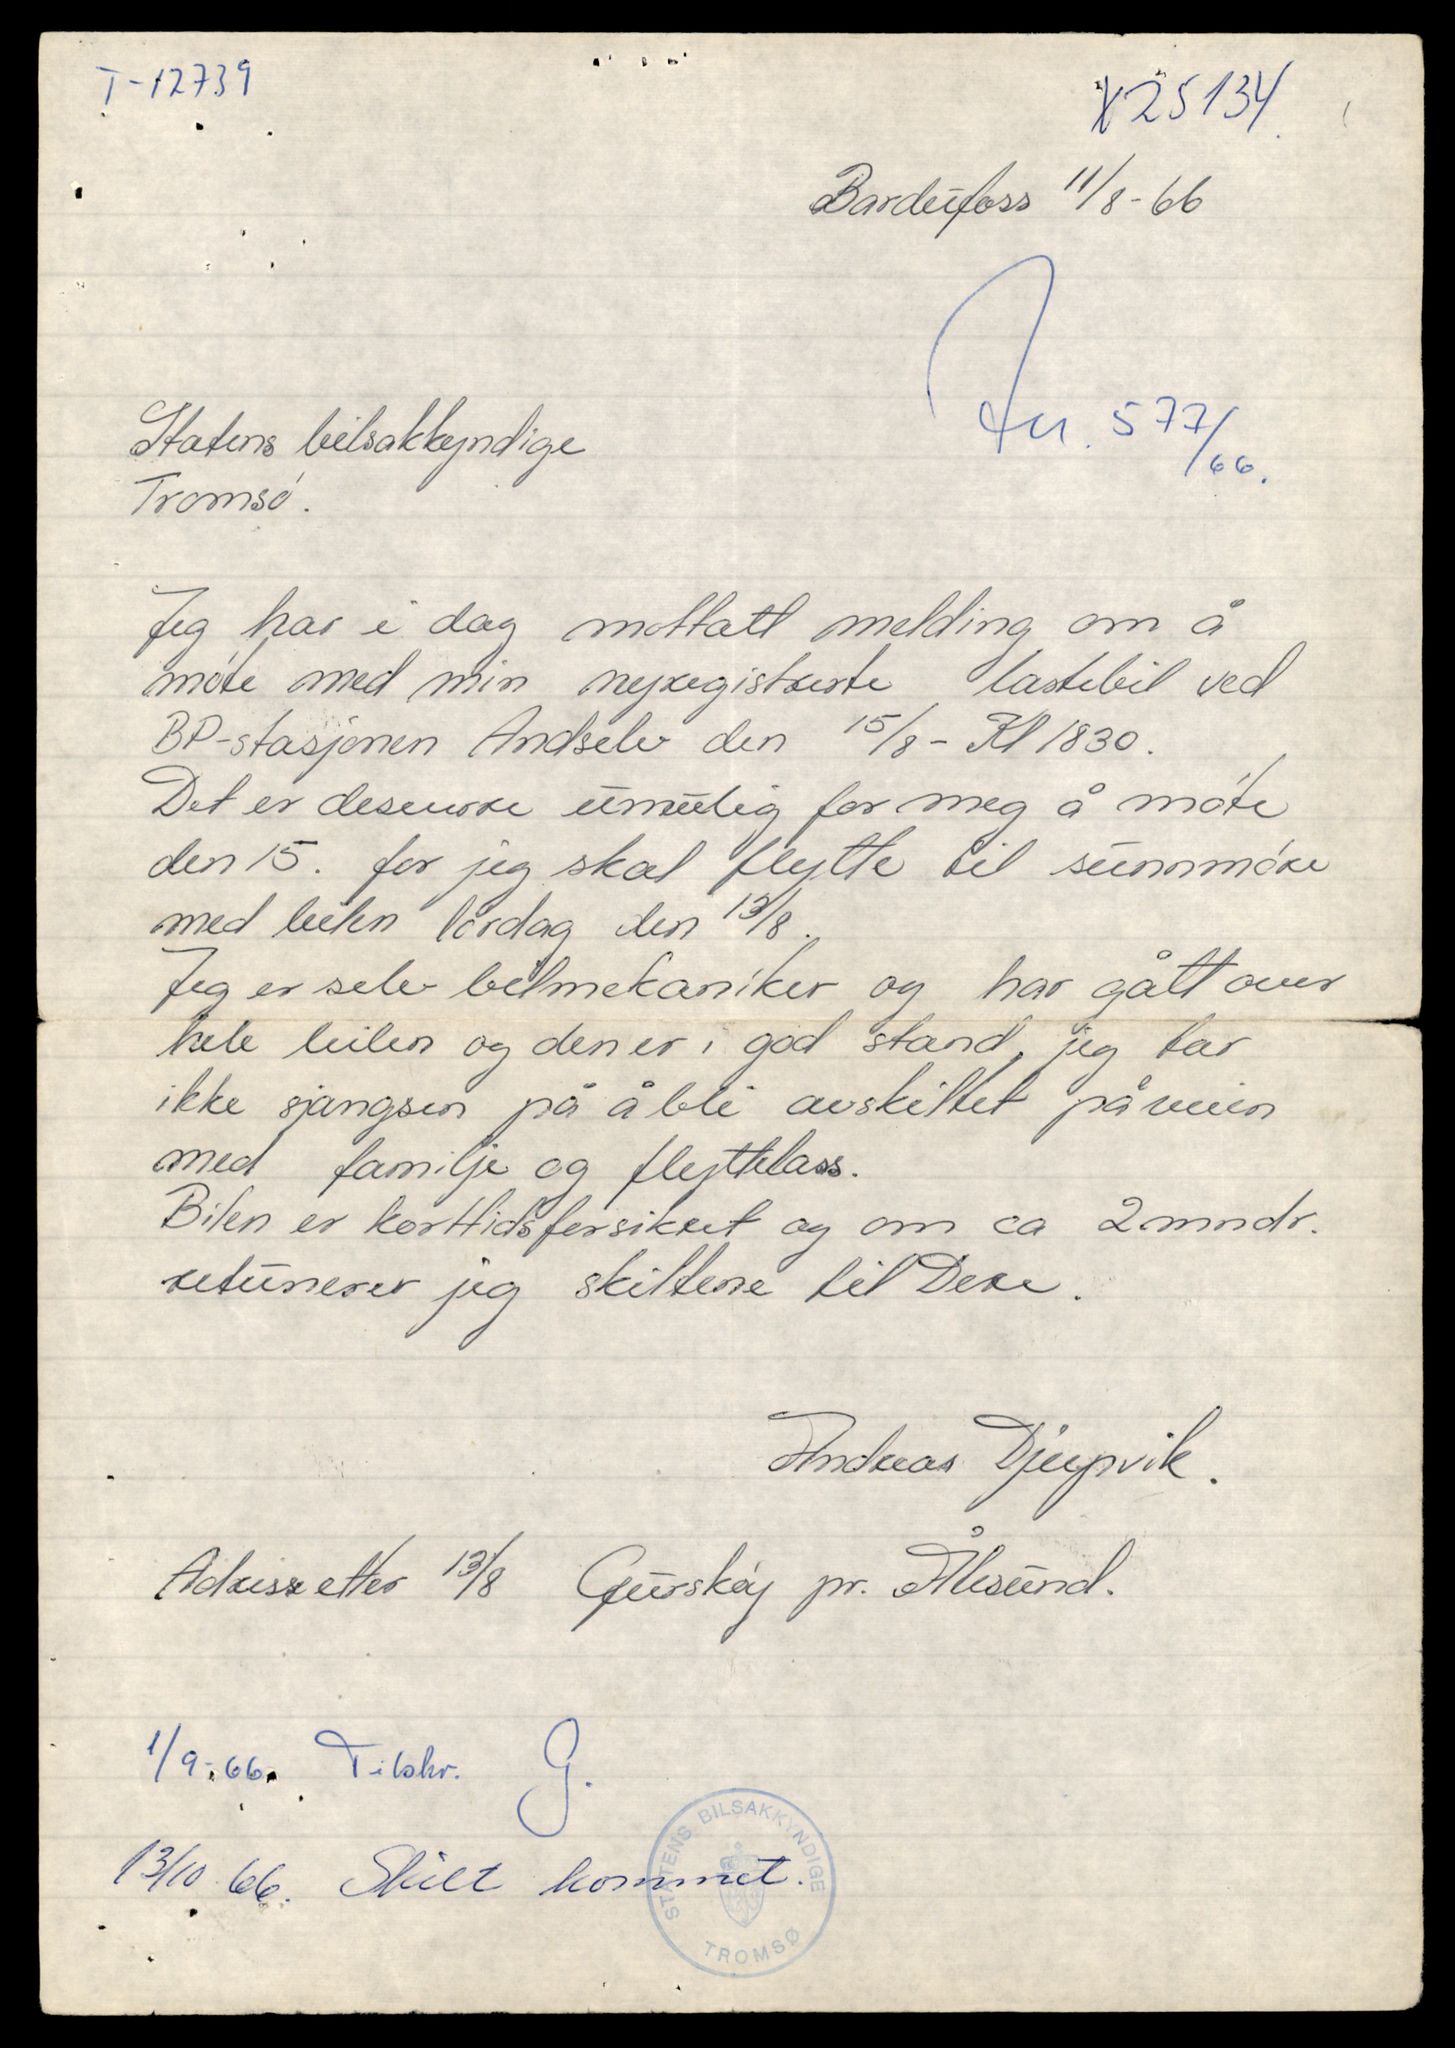 T-12739
X25134
Bardufoss 11/8-66
Jnr. 577/66.
Statens bilsakkyndige
Tromsø.
Jeg har i dag mottatt melding om å
møte med min nyregistrerte lastebil ved
BP-stasjonen Andselv den 15/8- Kl 1830.
Det er desverre umulig for meg å møte
den 15. for jeg skal flytte til sunnmøre
med bilen lørdag den 13/8.
Jeg er selv bilmekaniker og har gått over
hele bilen og den er i god stand, jeg tar
ikke sjangsen på å bli avskiltet på veien
med familje og flyttelass.
Bilen er korttidsforsikret og om ca 2 mndr.
retunerer jeg skiltene til Dere.
Andreas Djupvik.
Adresse etter 13/8 Gurskøy pr. Ålesund.
1/9-66. Tilskr. G.
13/10 66. Skilt kommet.
STATENS BILSAKKYNDIGE
TROMSØ